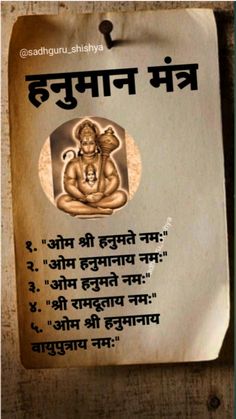 @sadhguru_shishya
हनुमान मंत्र
१. "ओम श्री हनुमते नमः"
२. "ओम हनुमानाय नमः"
३. "ओम हनुमते नमः"
४. "श्री रामदूताय नमः"
५. "ओम श्री हनुमानाय
वायुपुत्राय नमः"